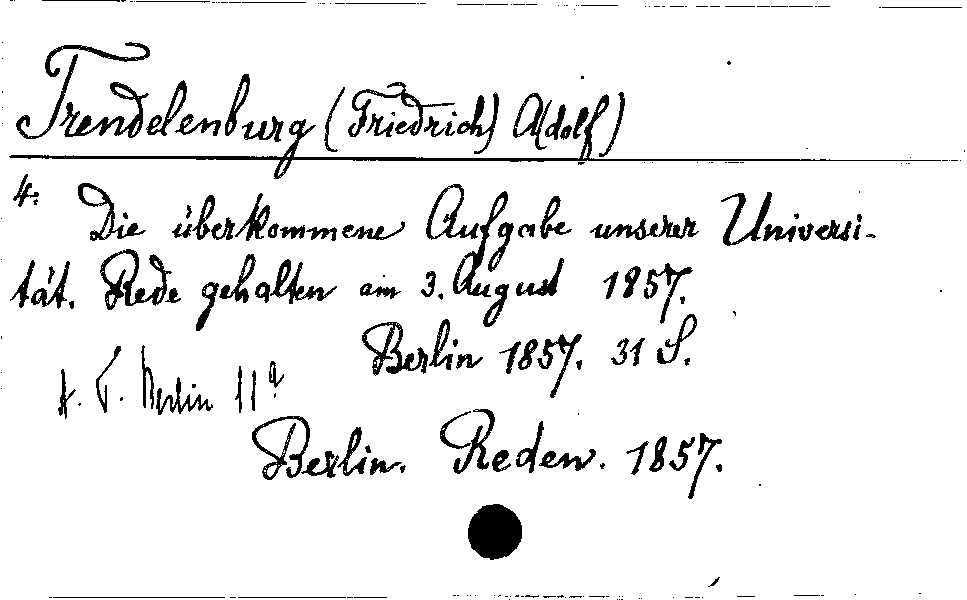 Trendelenburg (Friedrich) Adolf)
4: Die überkommene Aufgabe unserer Universi-
tät. Rede gehalten am 3. August 1857.
Berlin 1857. 31 S.
Berlin
Berlin. Reden. 1857.